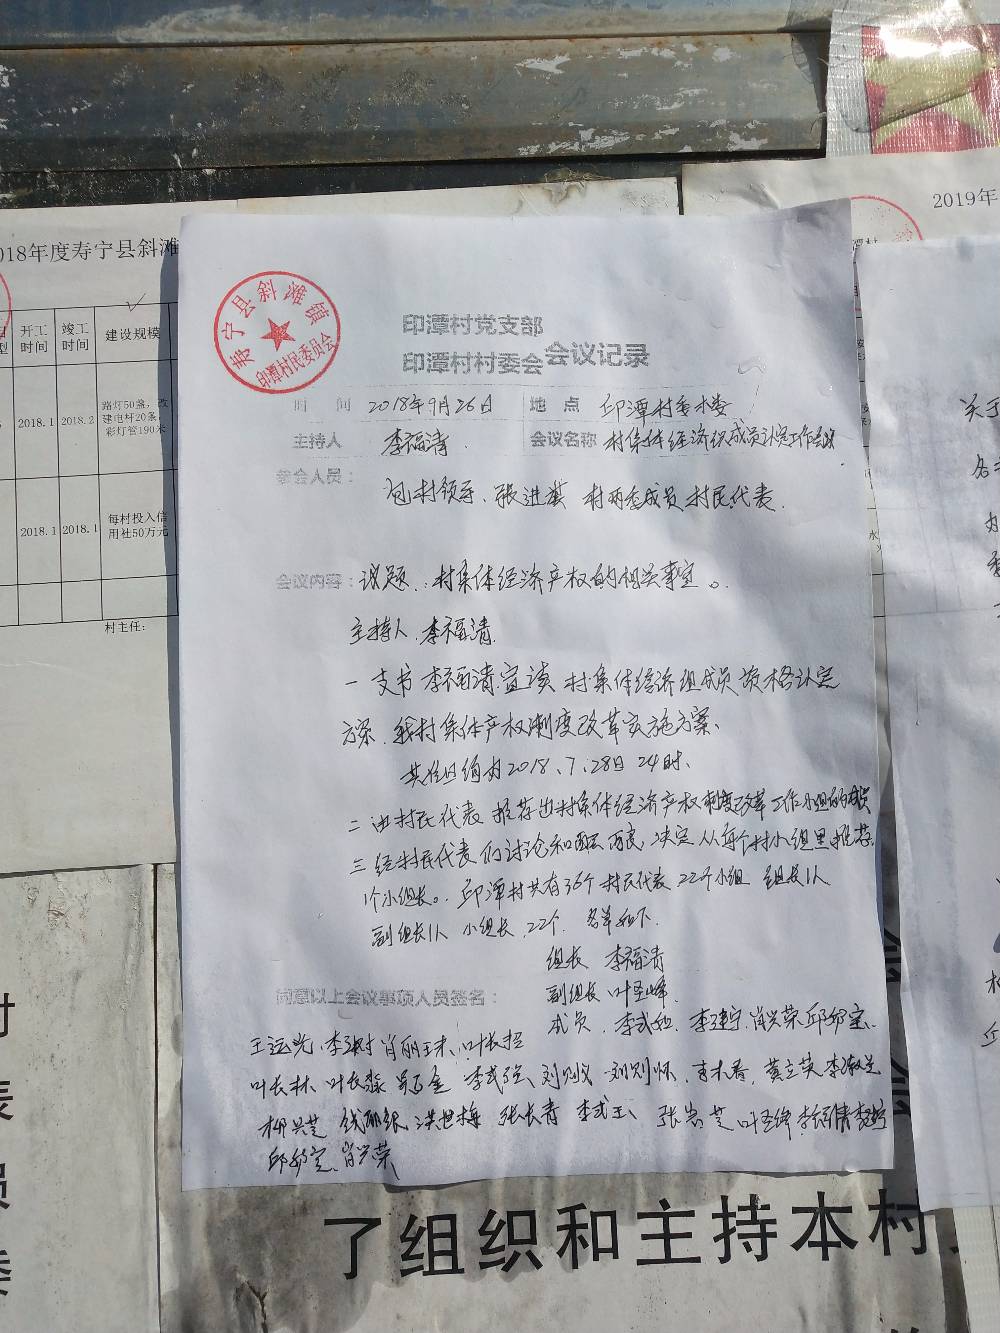 2019年
018年度寿宁县斜滩
开工时间
竣工时间
建设规模
2018.1
2018.2
路灯50盏，改
建电杆20条，
彩灯管190米
2018.1
2018.1
每村投入信
用社50万元
村主任：
寿宁县斜滩镇
印潭村民委员会
印潭村党支部
印潭村村委会会议记录
时 间 2018年9月26日 地 点 邱潭村委楼
主持人 李福清 会议名称 村集体经济组织成员认定工作会议
参会人员：
包村领导、张进 村两委成员 村民代表
会议内容：议题：村集体经济产权的相关事宜。
主持人 李福清
一 支书 李福清 宣读 村集体经济组成员资格认定
方案、我村集体产权制度改革实施方案、
2018、7、28日 24时、
二 由村民代表 推荐出村集体经济产权制度改革工作小组的成员
三 经村民代表们讨论和酝酿、决定从每个村小组里推荐
1个小组长。邱潭村共有36个村民代表 22个小组 组长1人
副组长1人 小组长 22个、名单如下
组长 李福清
同意以上会议事项人员签名：
副组长 叶圣峰
成员 李式 李建宁 肖兴荣 邱
王运光、李 肖丽 叶长
叶长林、叶长 李式 刘 刘 春、黄立英
柳兴芝 洪世梅 张长青 李式玉、张 芝 叶圣峰
邱 肖兴荣
了组织和主持本村